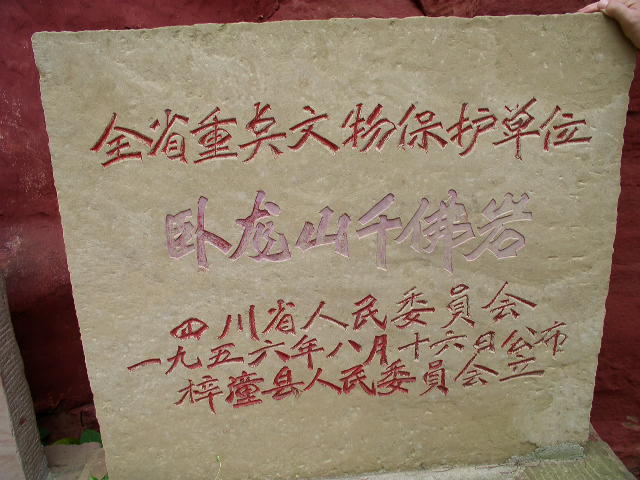 全省重点文物保护单位
卧龙山千佛岩
四川省人民委员会
一九五六年八月十六日公布
梓潼县人民委员会立